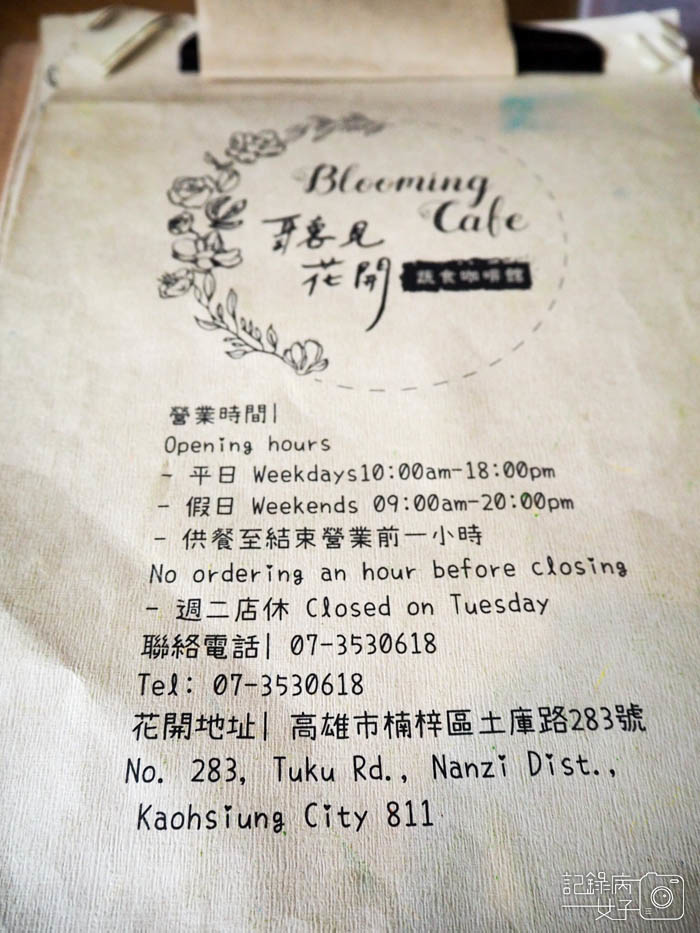 Blooming
Cafe
聽見
花開
蔬食咖啡館
營業時間|
Opening hours
- 平日 Weekdays10:00am-18:00pm
- 假日 Weekends 09:00am-20:00pm
- 供餐至結束營業前一小時
No ordering an hour before closing
- 週二店休 Closed on Tuesday
聯絡電話| 07-3530618
Tel: 07-3530618
花開地址| 高雄市楠梓區土庫路283號
No. 283, Tuku Rd., Nanzi Dist.,
Kaohsiung City 811
記錄病
女子